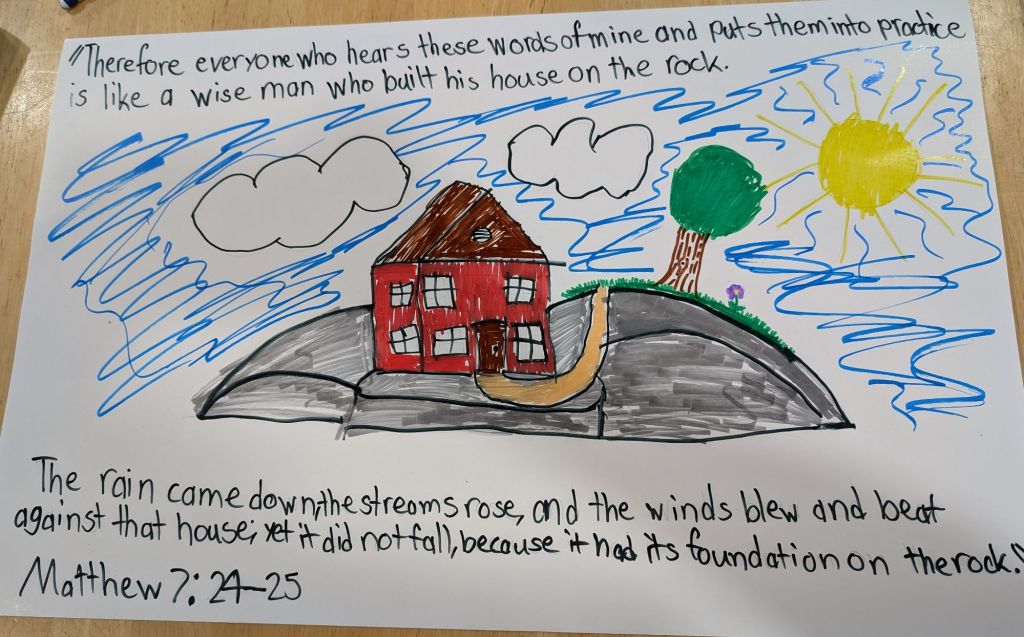 "Therefore everyone who hears these words of mine and puts them into practice
is like a wise man who built his house on the rock.
The rain came down, the streams rose, and the winds blew and beat
against that house; yet it did not fall, because it had its foundation on the rock."
Matthew 7:24-25